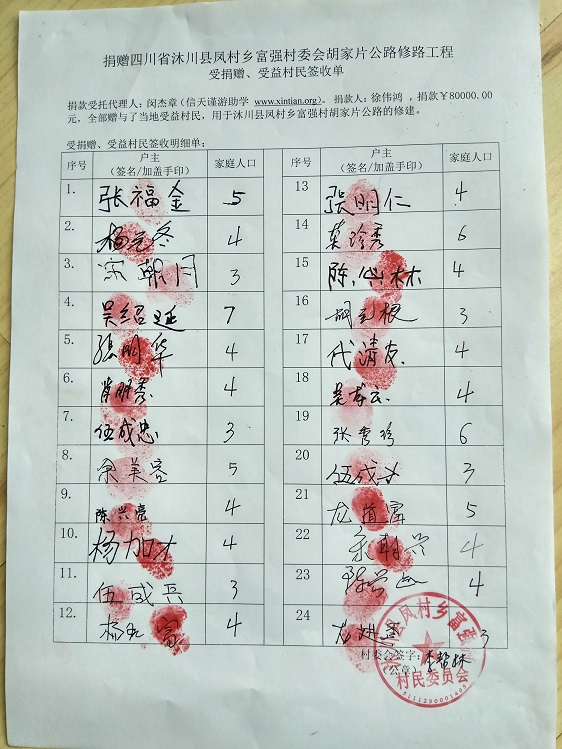 捐赠四川省沐川县凤村乡富强村委会胡家片公路修路工程
受捐赠、受益村民签收单
捐款受托代理人：闵杰章（信天谨游助学 www.xintian.org）。捐款人：徐伟鸿，捐款￥80000.00
元，全部赠与了当地受益村民，用于沐川县凤村乡富强村胡家片公路的修建。
受捐赠、受益村民签收明细单：
序号 户主（签名/加盖手印） 家庭人口
1. 张福金 5
2. 4
3. 宗朝月 3
4. 吴绍延 7
5. 张明华 4
6. 肖明秀 4
7. 伍成忠 3
8. 余美容 5
9. 陈兴亮 4
10. 杨加才 4
11. 伍成兵 3
12. 4
序号 户主（签名/加盖手印） 家庭人口
13 张明仁 4
14 6
15 陈仙林 4
16 3
17 代清友 4
18 4
19 张秀珍 6
20 3
21 5
22 4
23 4
24 3
村委会签字：
（公章）
凤村乡富强
村民委员会
5111290001405